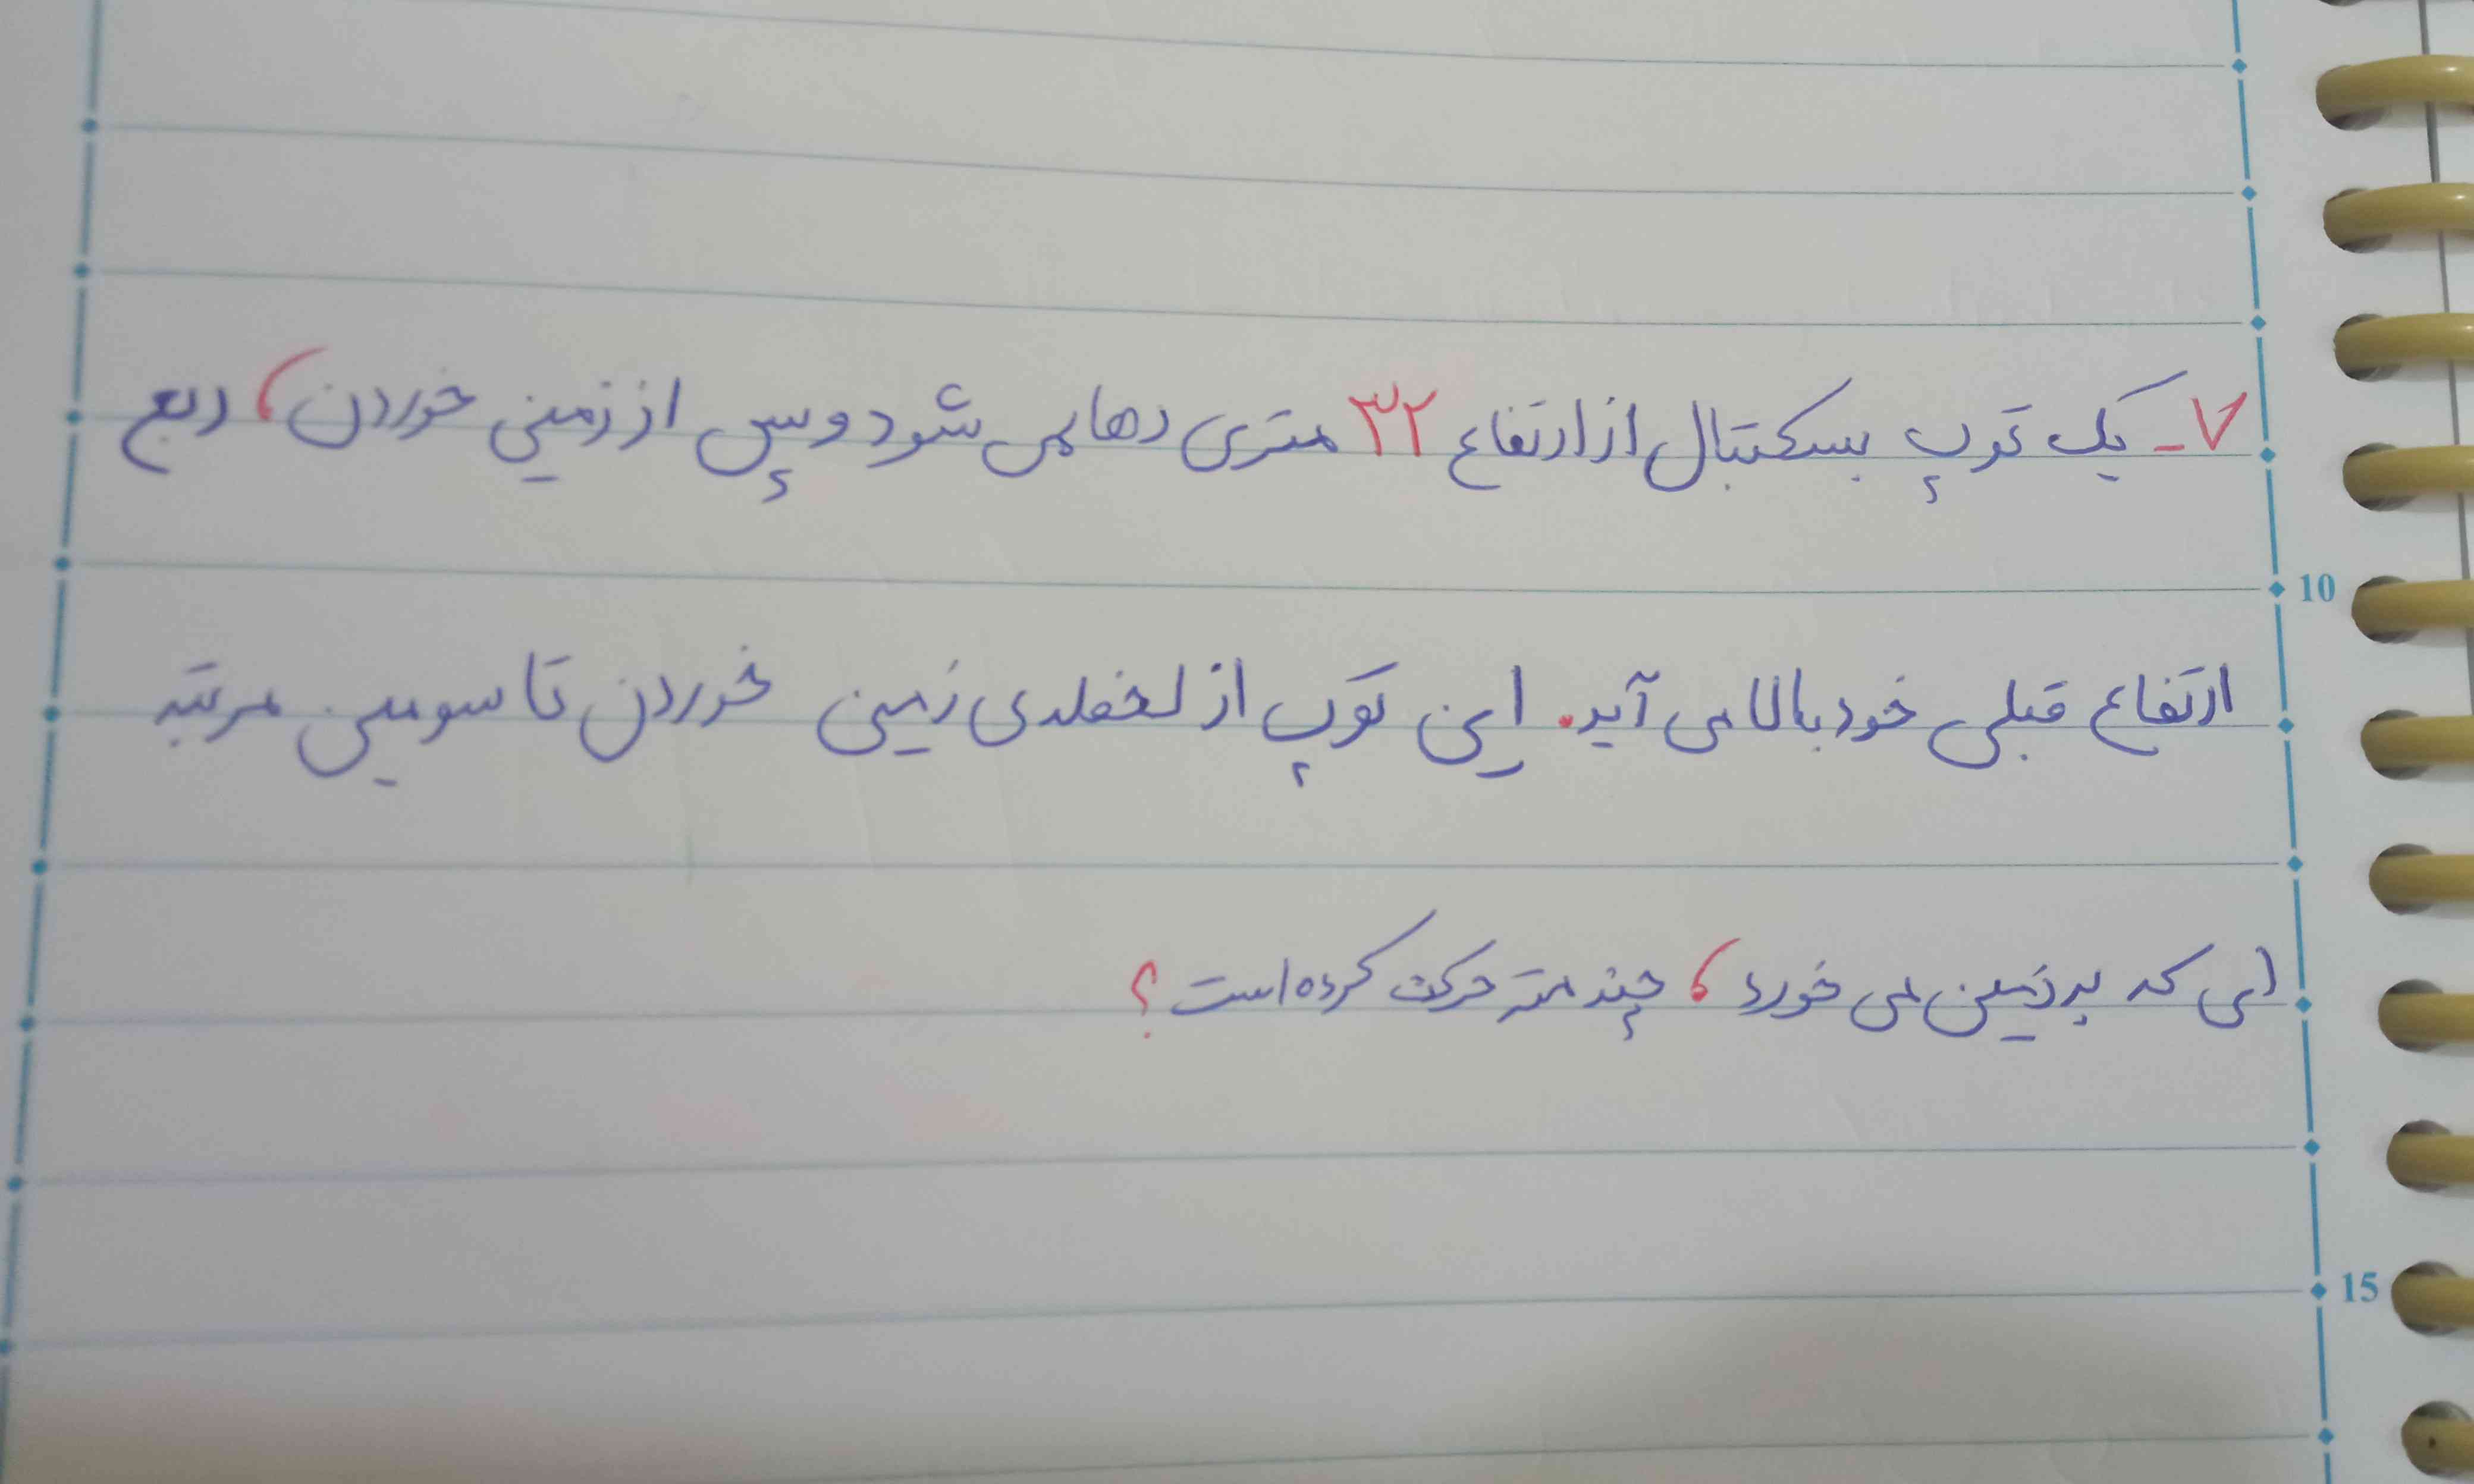 ۷- یک توپ بسکتبال از ارتفاع ۳۲ متری رها می شود و پس از زمین خوردن، ربع
10
ارتفاع قبلی خود بالا می آید. این توپ از لحظه ی زمین خوردن تا سومین مرتبه
ای که به زمین می خورد، چند متر حرکت کرده است؟
15